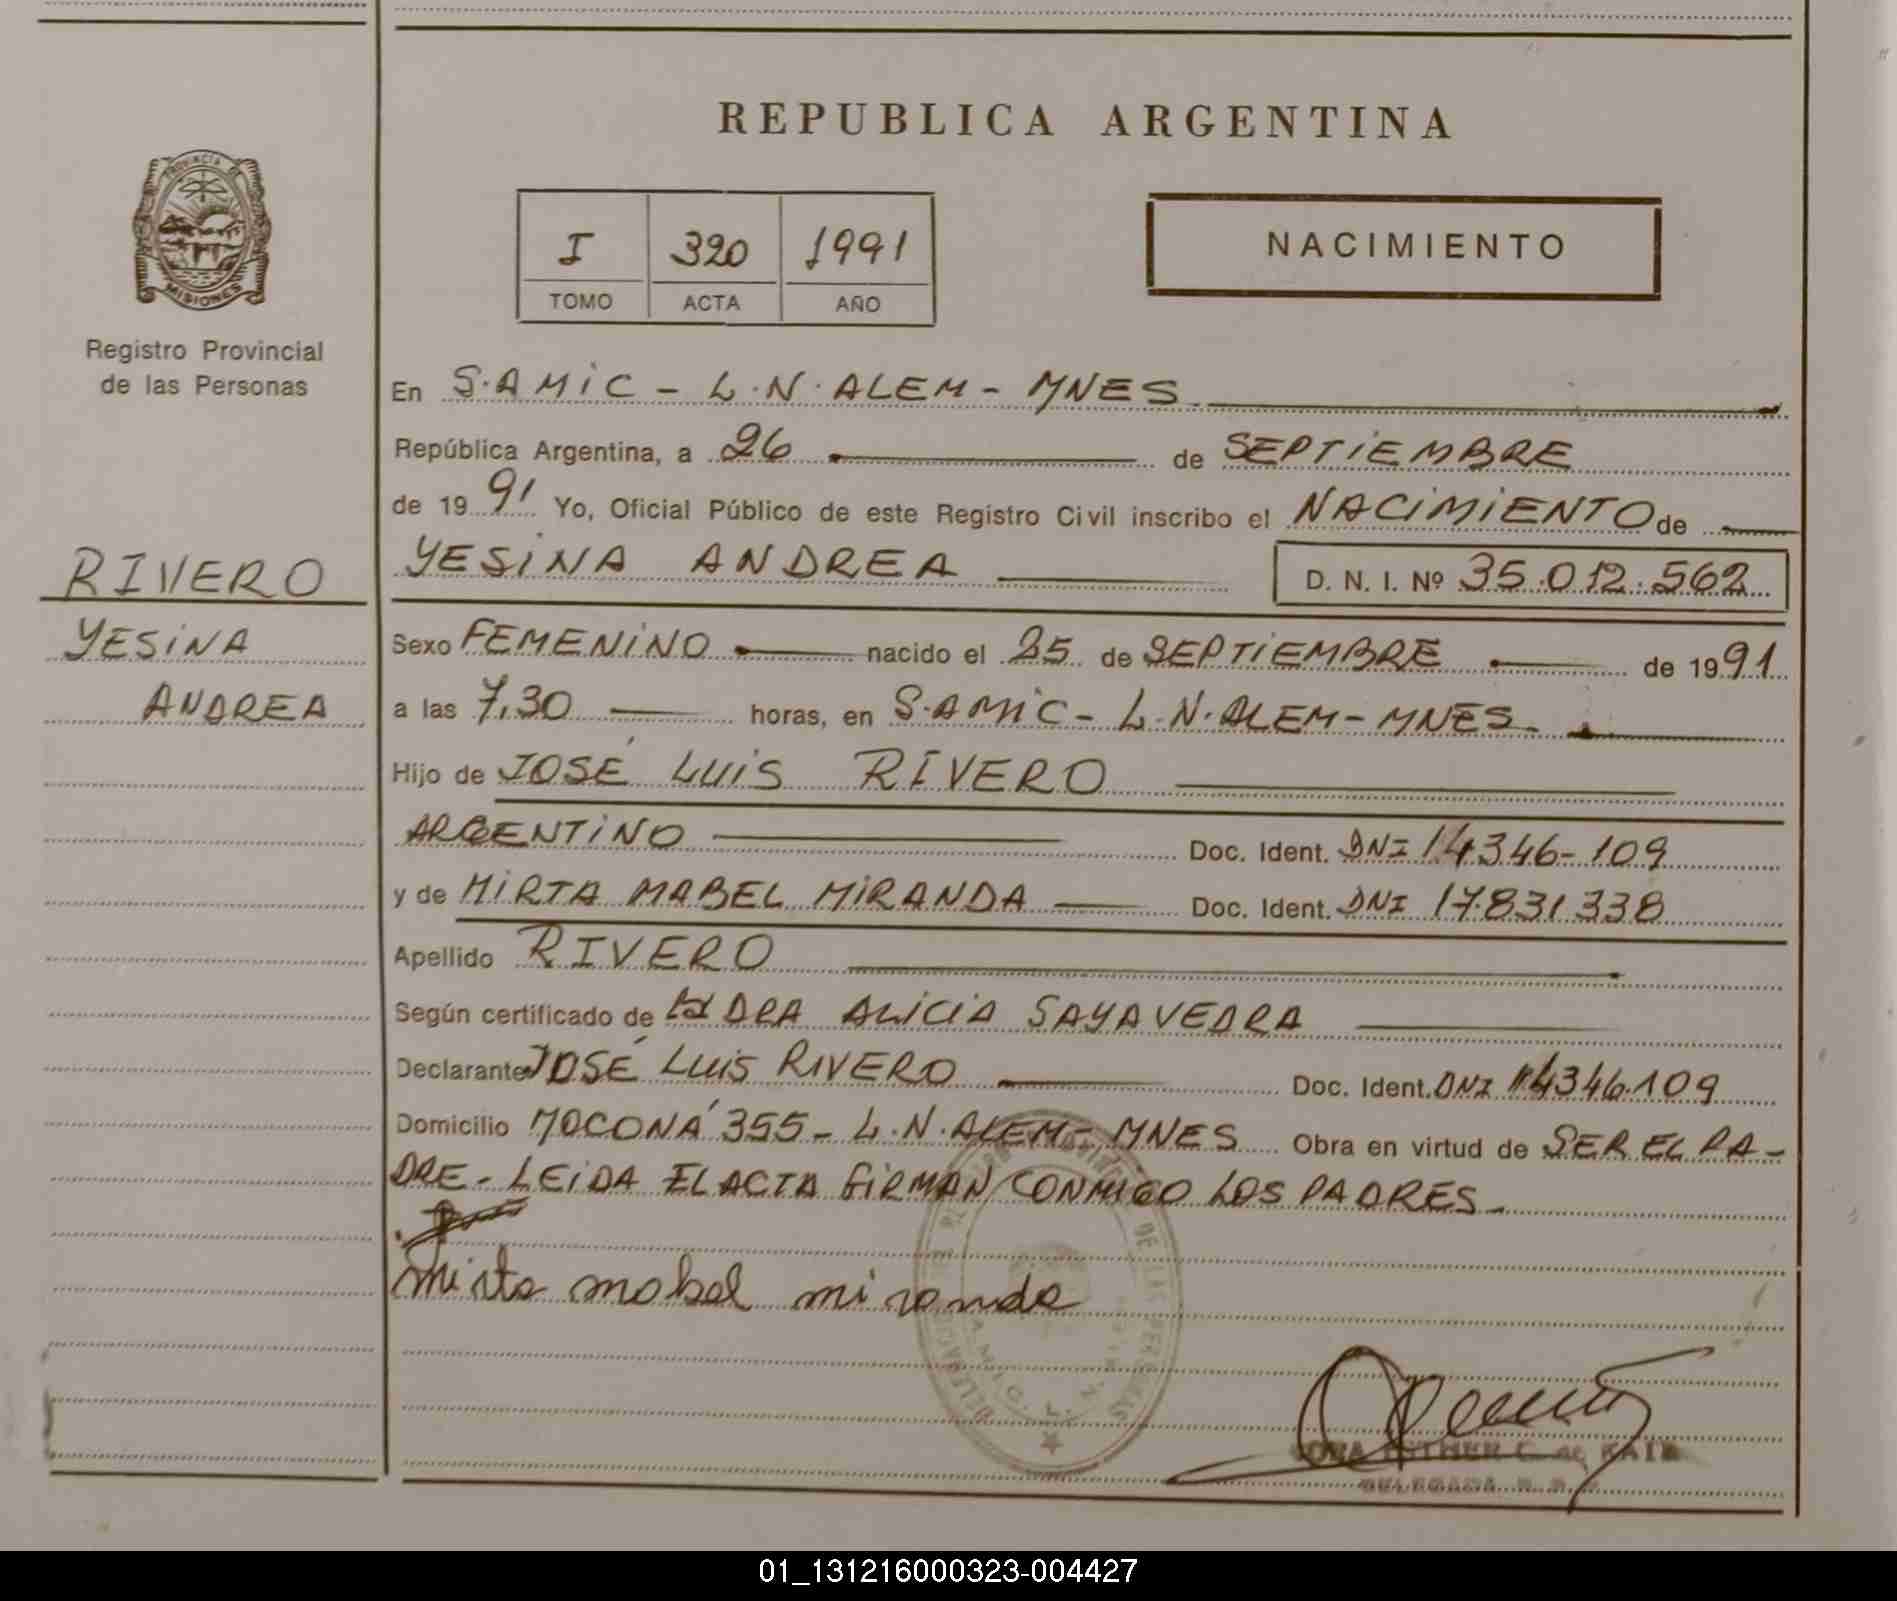 REPUBLICA ARGENTINA
PROVINCIA DE
MISIONES
Registro Provincial
de las Personas
I 320 1991
TOMO ACTA AÑO
NACIMIENTO
En S.AMIC - L.N.ALEM - MNES
República Argentina, a 26 de SEPTIEMBRE
de 1991 Yo, Oficial Público de este Registro Civil inscribo el NACIMIENTO de
YESINA ANDREA D. N. I. Nº 35.012.562
RIVERO
YESINA
ANDREA
Sexo FEMENINO nacido el 25 de SEPTIEMBRE de 1991
a las 7,30 horas, en S.AMIC - L.N.ALEM - MNES
Hijo de JOSÉ LUIS RIVERO
ARGENTINO Doc. Ident. DNI 14346-109
y de MIRTA MABEL MIRANDA Doc. Ident. DNI 17.831.338
Apellido RIVERO
Según certificado de DRA ALICIA SAYAVEDRA
Declarante JOSÉ LUIS RIVERO Doc. Ident. DNI 14346.109
Domicilio MOCONÁ 355 - L.N.ALEM - MNES Obra en virtud de SER EL PA-
DRE - LEIDA EL ACTA FIRMAN CONMIGO LOS PADRES -
Mirta mabel miranda
DE LAS PERSONAS
ESTHER C. de
DELEGADA
01_131216000323-004427